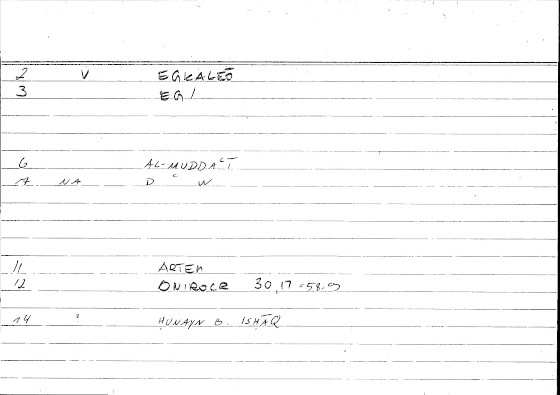 2 V EGKALEŌ
3 EG/
6 AL-MUDDAʿĪ
7 NA D W
11 ARTEM
12 ONIROCR 30,17-58.
14 ḤUNAYN B. ISḤĀQ